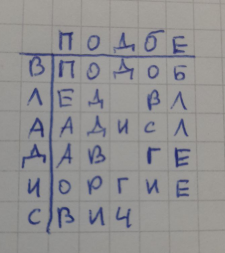 П О Д Б Е
В П О Д О Б
Л Е Д В Л
А А Д И С Л
Д А В Г Е
И О Р Г И Е
С В И Ч